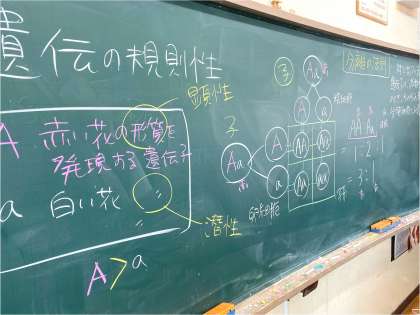 遺伝の規則性
A 赤い花の形質を
発現する遺伝子
a 白い花 〃 〃
顕性
潜性
A>a
子
Aa
A
a
子
Aa
A
a
AA
Aa
Aa
aa
生殖細胞
分離の法則
AA Aa
= 1 : 2 : 1
= 3 : 1